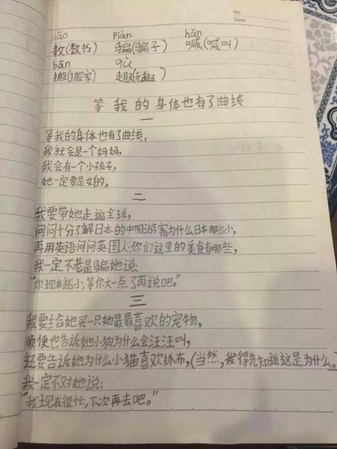 No:
Date
jiāo piàn hǎn
教(教书) 骗(骗子) 喊(喊叫)
bān qù
搬(搬家) 趣(无趣)
等我的身体也有了曲线
一
等我的身体也有了曲线,
我就会是一个妈妈,
我会有一个小孩子,
她一定要是女的。
二
我要带她走遍全球,
问问十分了解日本的中国游客为什么日本那么小,
再用英语问问英国人:你们这里的美食有哪些,
我一定不老是骗她说:
"你现在还小,等你大一点了再说吧。"
三
我要给她买一只她最最喜欢的宠物,
顺便也告诉她小狗为什么会汪汪叫,
还要告诉她为什么小猫喜欢抓布,(当然,我得先知道这是为什么。
我一定不对她说:
"我现在很忙,下次再去吧。"